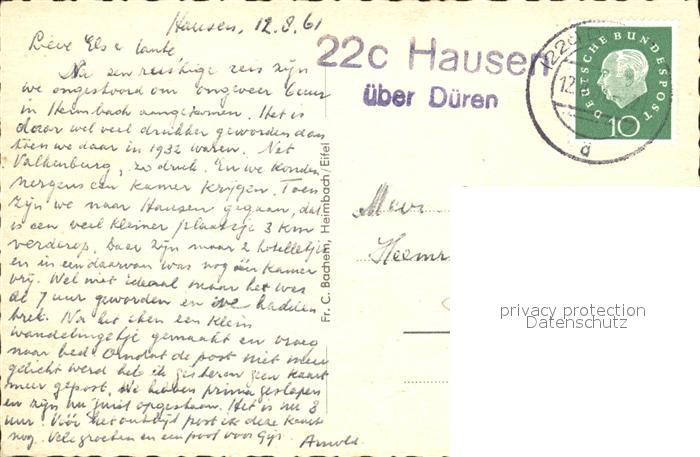 Hausen, 12.8.61
Lieve Els & tante,
Na een rustige reis zijn
we ongestoord om ongeveer 6 uur
in Heimbach aangekomen. Het is
daar wel veel drukker geworden dan
toen we daar in 1932 waren. Net
Valkenburg, zo druk. En we konden
nergens een kamer krijgen. Toen
zijn we naar Hausen gegaan, dat
is een veel kleiner plaatsje 3 km
verderop. Daar zijn maar 2 hotelletjes
en in een daarvan was nog één kamer
vrij. Wel niet ideaal maar het was
al 7 uur geworden en we hadden
trek. Na het eten een klein
wandelingetje gemaakt en vroeg
naar bed. Omdat de post niet meer
gelicht werd heb ik gisteren geen kaart
meer gepost. We hebben prima geslapen
en zijn nu juist opgestaan. Het is nu 8
uur. Vóór het ontbijt post ik deze kaart
nog. Vele groeten en een poot voor Gijs.
Arnold.
Fr. C. Bachem, Heimbach/Eifel
22c Hausen
über Düren
DEUTSCHE BUNDESPOST
10
a
Mevr
Heemr
privacy protection
Datenschutz